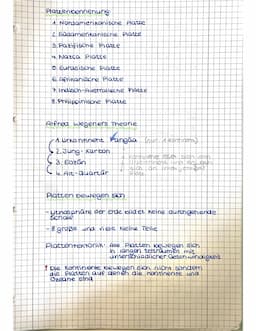 Plattenbenennung
1. Nordamerikanische Platte
2. Südamerikanische Platte
3. Pazifische Platte
4. Nazca Platte
5. Eurasische Platte
6. Afrikanische Platte
7. Indisch-Australische Platte
8. Philippinische Platte
Alfred Wegeners Theorie
1. Urkontinent Pangäa
2. Jung-Karbon
3. Eozän
4. Alt-Quartär
Platten bewegen sich
- Lithosphäre der Erde bildet keine durchgehende
Schale
- 8 große und viele kleine Teile
Plattentektonik: Alle Platten bewegen sich
in langen Zeiträumen mit
unterschiedlicher Geschwindigkeit
! Die Kontinente bewegen sich nicht sondern
die Platten auf denen die Kontinente und
Ozeane sind